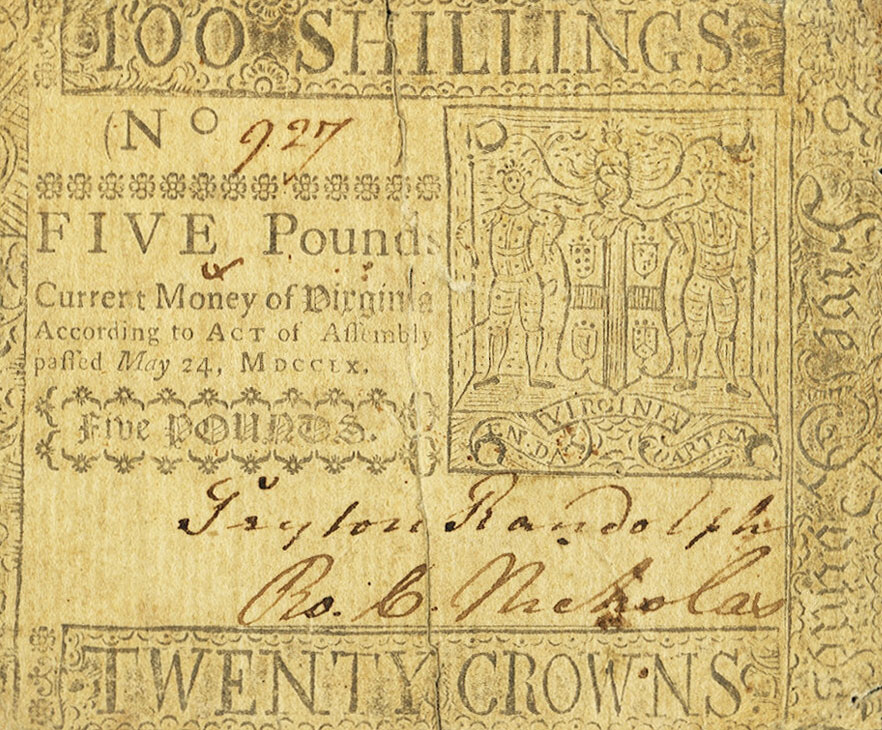 100 SHILLINGS
(No 927)
FIVE Pounds
Current Money of Virginia
According to ACT of Aſſembly
paſſed May 24, MDCCLX.
Five POUNDS.
VIRGINIA
EN DAT
QUARTAM
Peyton Randolph
Ro. C. Nicholas
TWENTY CROWNS
Five Pounds